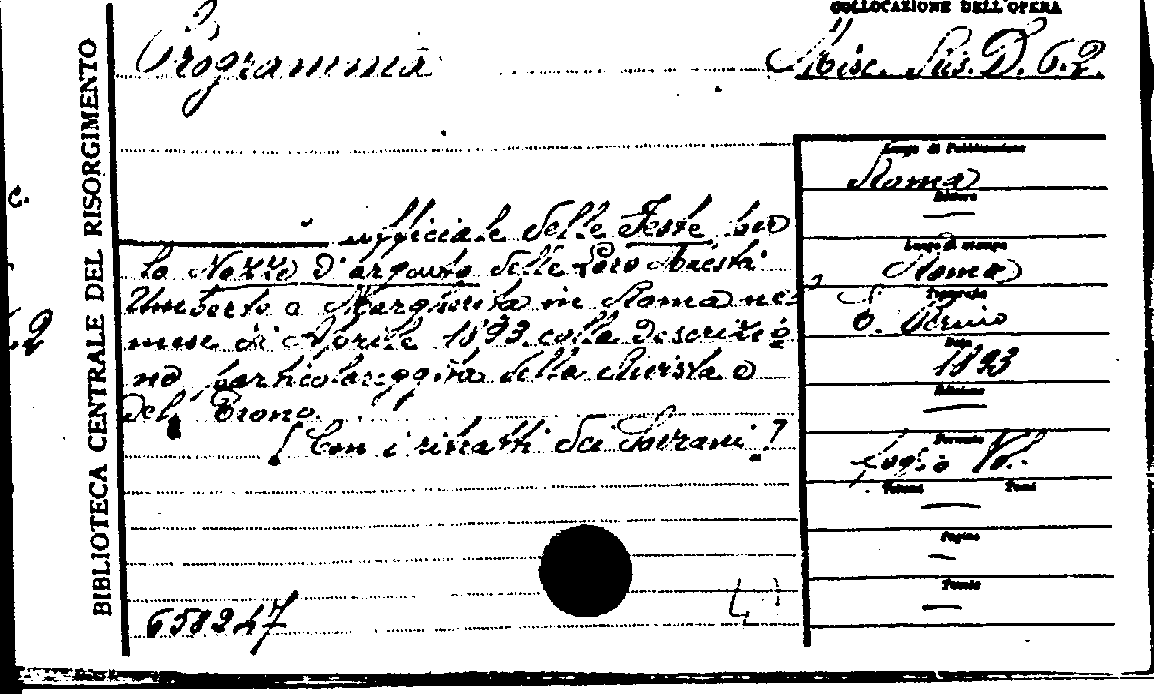 COLLOCAZIONE DELL'OPERA
Programma
Misc. Ris. D. 6.2.
BIBLIOTECA CENTRALE DEL RISORGIMENTO
c.
2
ufficiale delle Feste per
le Nozze d'argento delle Loro Maestà
Umberto e Margherita in Roma nel
mese di Aprile 1893 colla descrizio
ne particolareggiata della Rivista e
del Torneo.
[Con i ritratti dei Sovrani]
658247
Luogo di Pubblicazione
Roma
Editore
—
Luogo di stampa
Roma
Tipografia
E. Perino
Data
1893
Edizione
—
Formato
foglio Vol.
Volumi Tomi
—
Pagine
—
Tavole
—